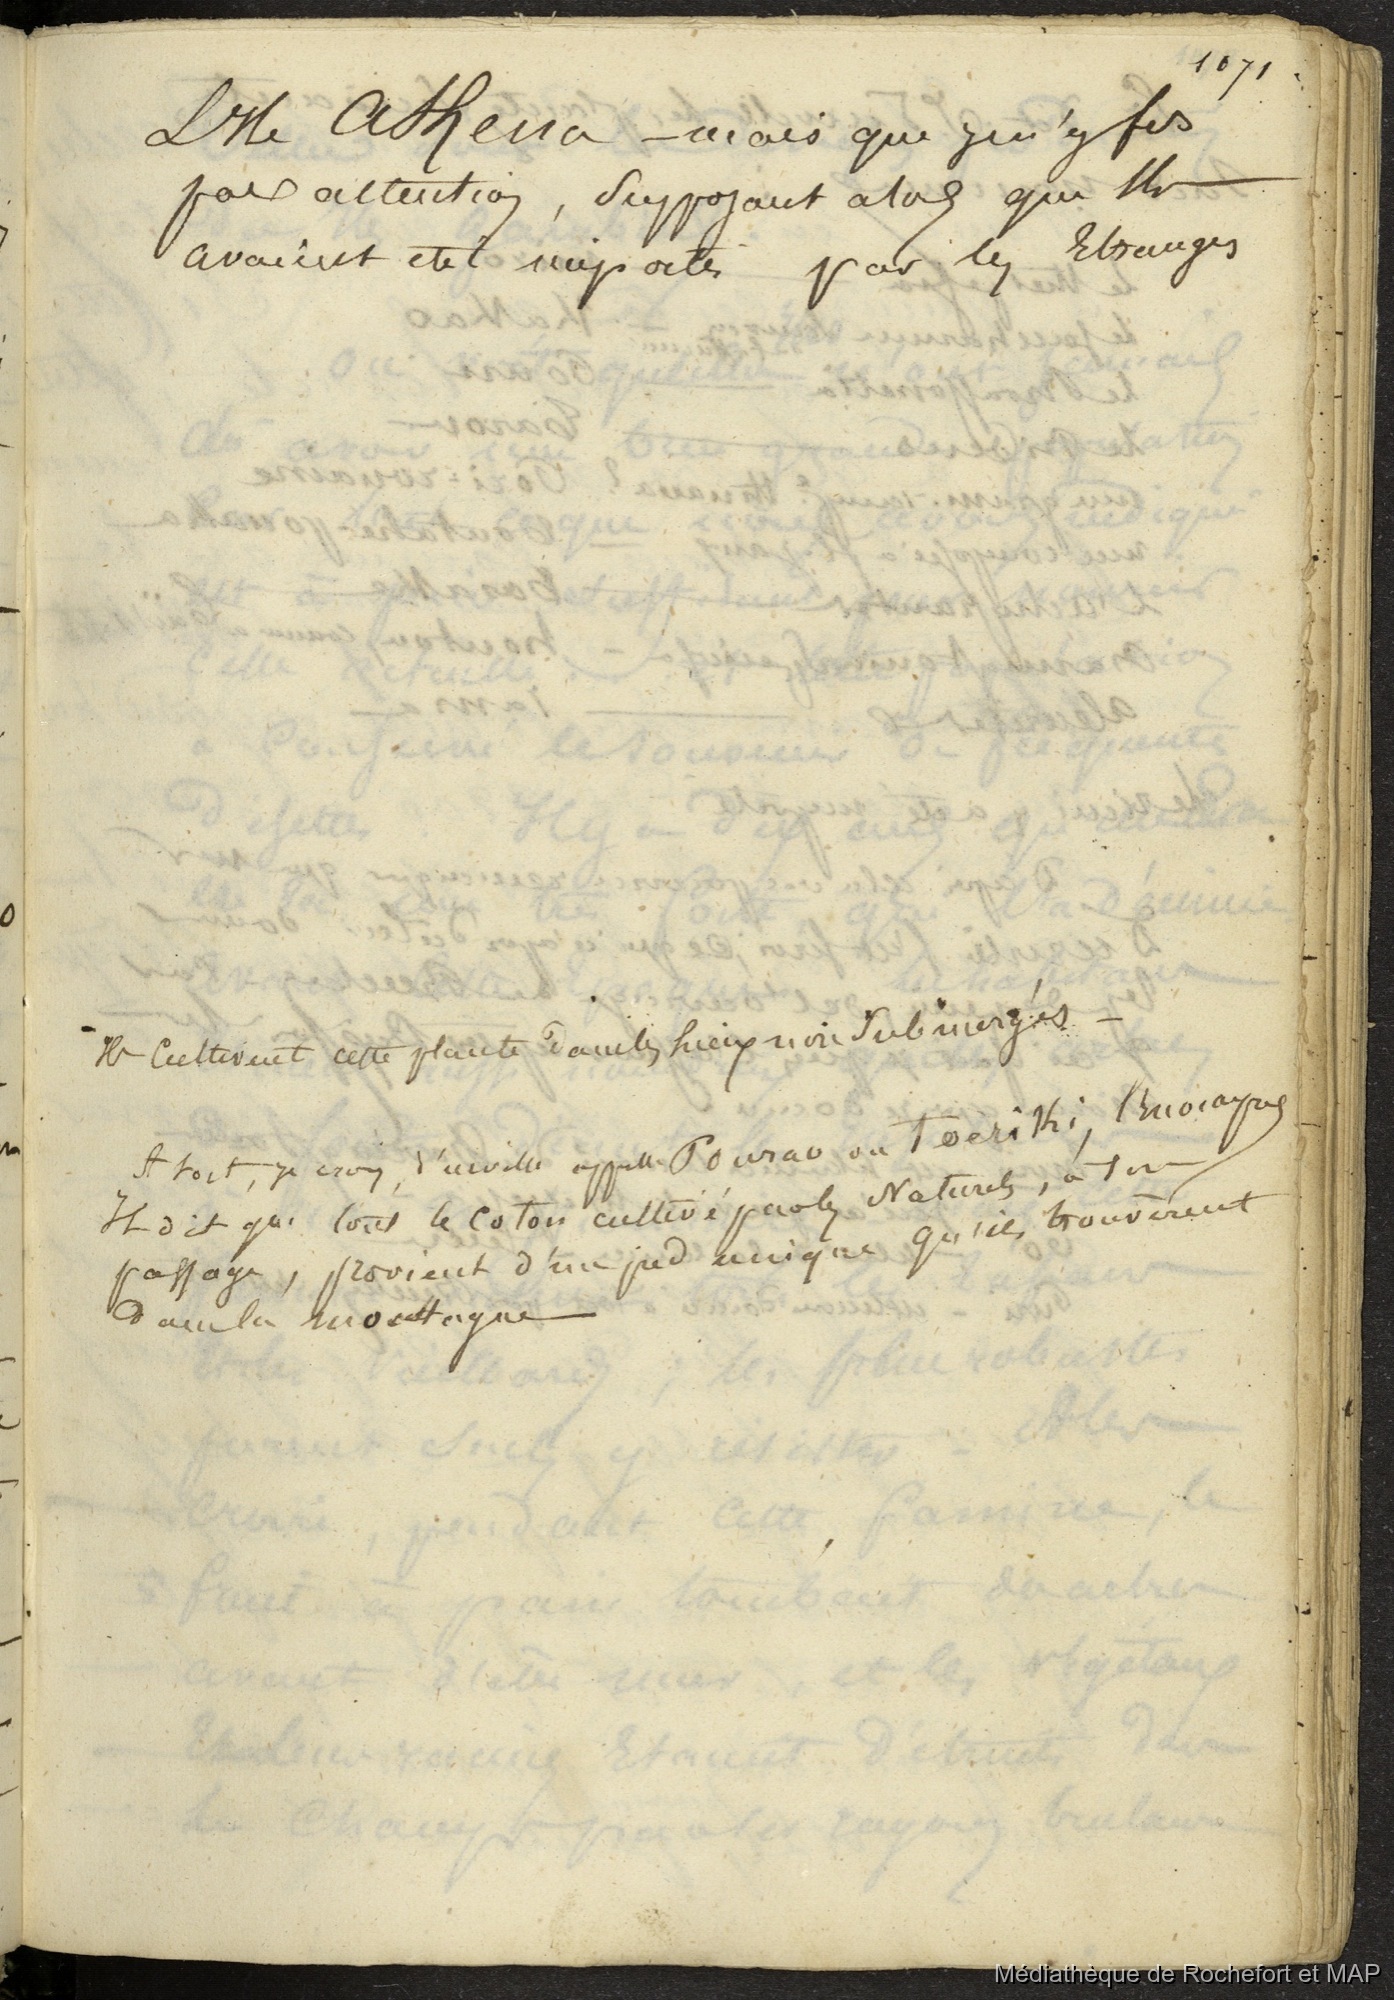 1071
L'Ile Athena – mais que je n'y fis
pas attention, supposant alors que Ils
avaient été importés par les Etrangers
Ils Cultivent cette plante dans les lieux non Submergés –
A tort, je crois, d'urville appelle Pourao ou Toeriki,
Il dit que tout le Coton cultivé par les Naturels, à son
passage, provient d'un pied unique qu'ils trouvèrent
dans la montagne
Médiathèque de Rochefort et MAP